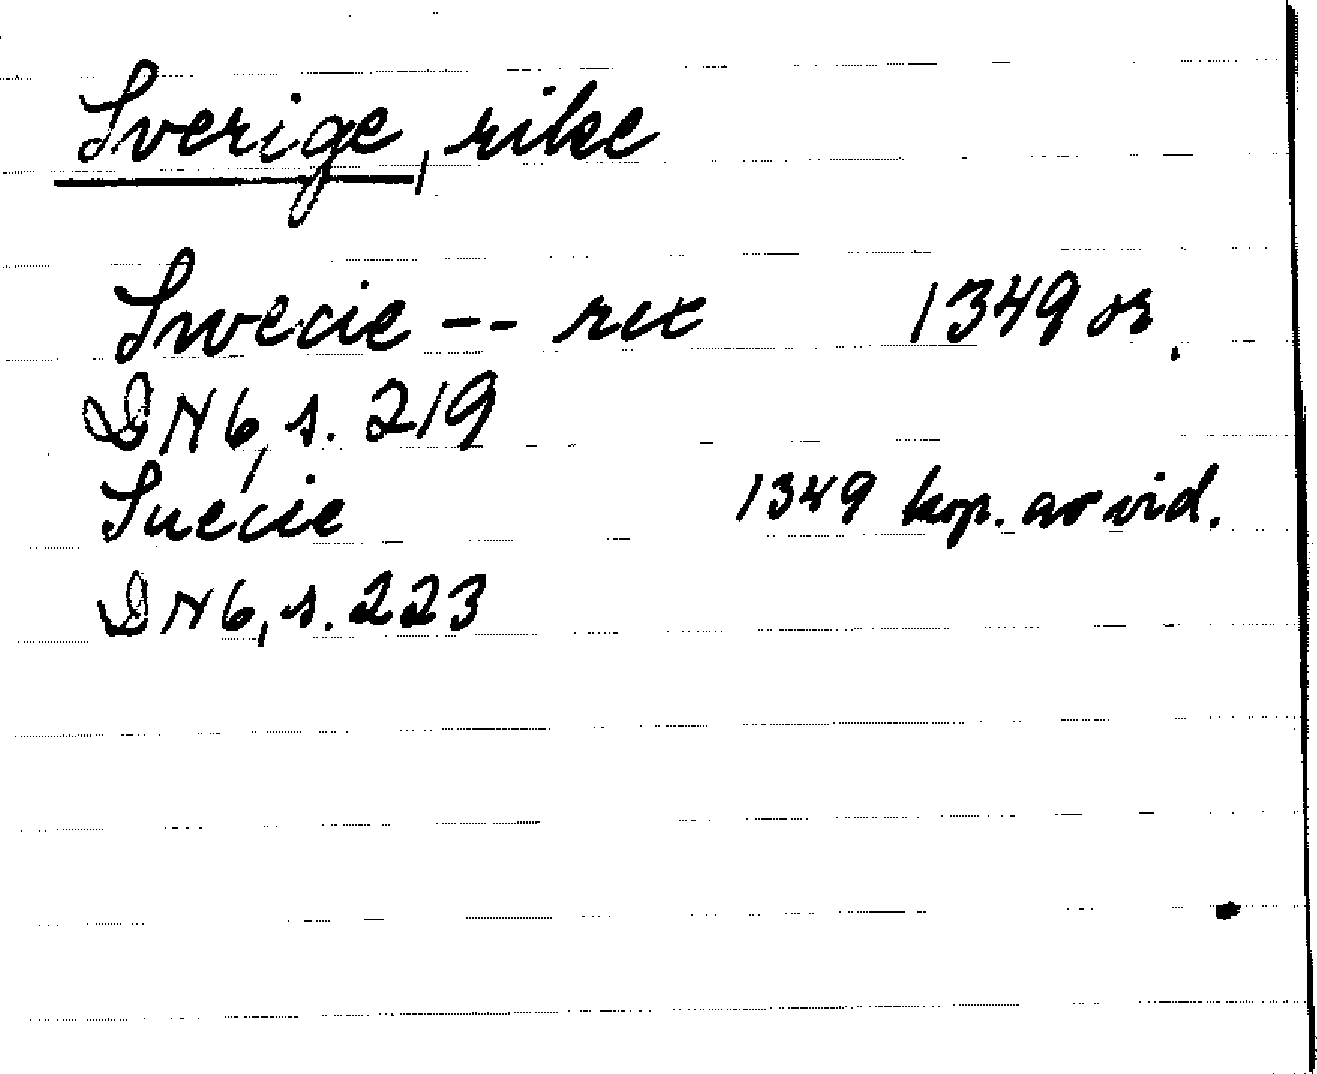 Sverige, rike
Swecie -- rex 1349 or.
DN 6, s. 219
Suecie 1349 kop. av vid.
DN 6, s. 223